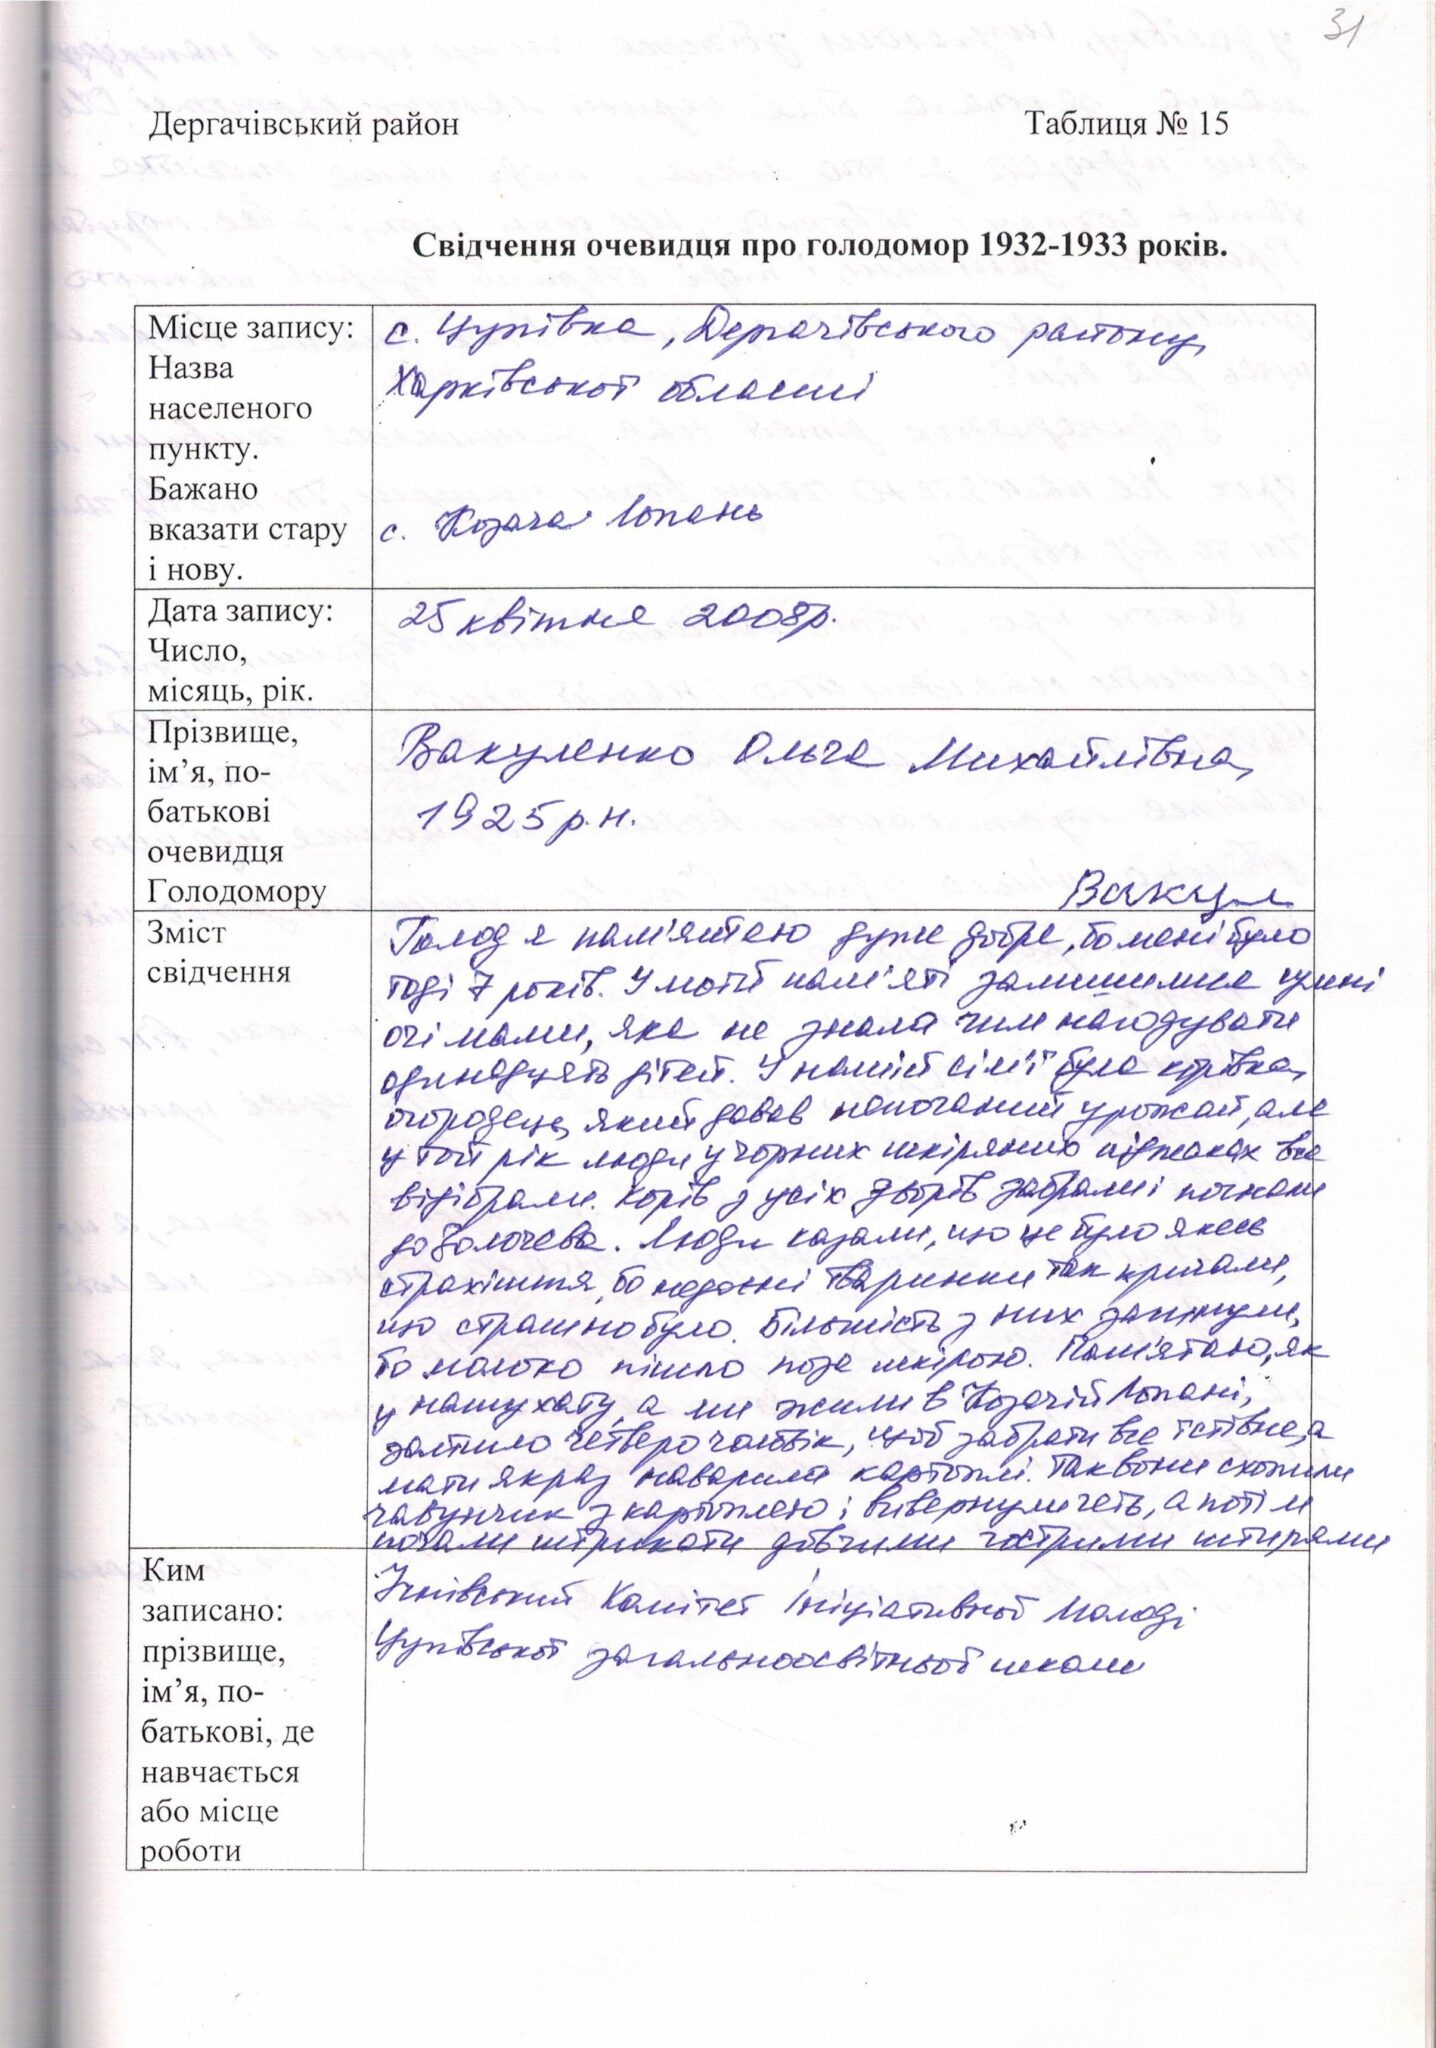 31
Дергачівський район Таблиця № 15
Свідчення очевидця про голодомор 1932-1933 років.
Місце запису:
Назва
населеного
пункту.
Бажано
вказати стару
і нову.
с. Цупівка, Дергачівського району,
Харківської області
с. Козача Лопань
Дата запису:
Число,
місяць, рік.
25 квітня 2008р.
Прізвище,
ім’я, по-
батькові
очевидця
Голодомору
Вакуленко Ольга Михайлівна,
1925 р.н.
Вакул
Зміст
свідчення
Голод я пам'ятаю дуже добре, бо мені було
тоді 7 років. У моїй пам'яті залишились сумні
очі мами, яка не знала чим нагодувати
одинадцять дітей. У нашій сім'ї була корівка,
огородец, який давав непоганий урожай, але
у той рік люди у чорних шкіряних піджаках все
відібрали. Корів з усіх дворів забрали і погнали
до Золочева. Люди казали, що це було якесь
страхіття, бо недоєні тваринки так кричали,
що страшно було. Більшість з них загинули,
бо молоко пішло поза шкірою. Пам'ятаю, як
у нашу хату, а ми жили в Козачій Лопані,
зайшло четверо чоловік, щоб забрати все їстівне, а
мати якраз наварила картоплі. Так вони схопили
чавунчик з картоплею і вивернули геть, а потім
почали штрикати довгими гострими штирями
Ким
записано:
прізвище,
ім’я, по-
батькові, де
навчається
або місце
роботи
Учнівський Комітет Ініціативної Молоді
Цупівської загальноосвітньої школи